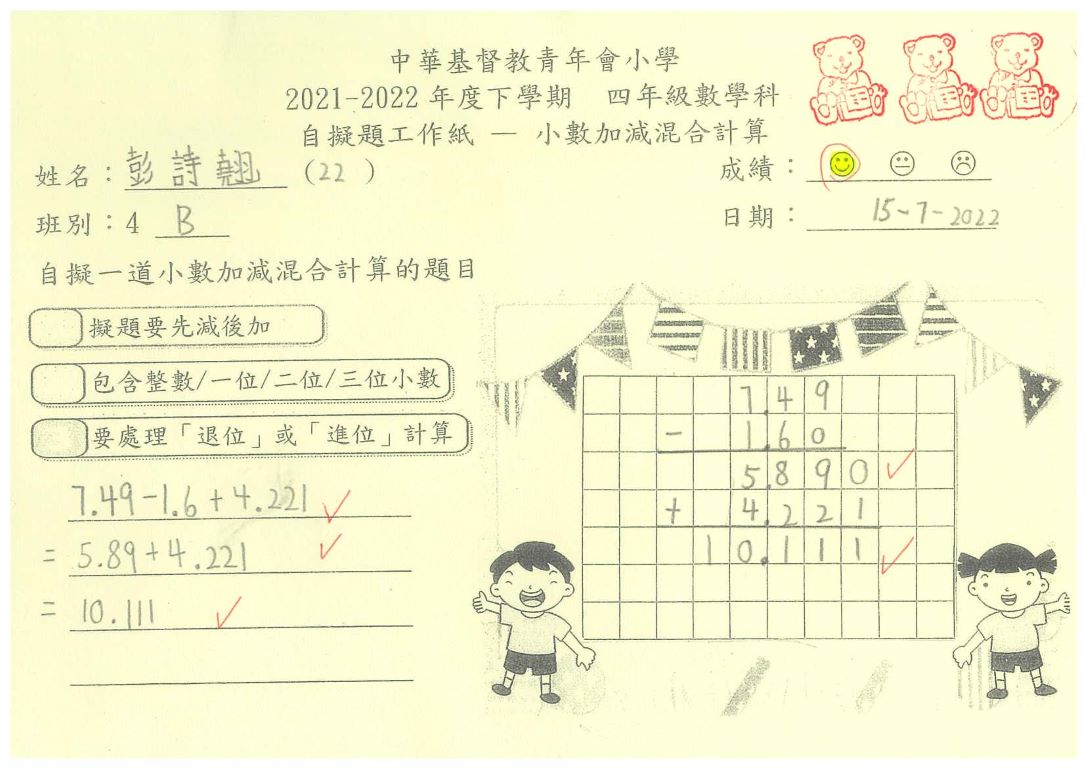 中華基督教青年會小學
2021-2022 年度下學期 四年級數學科
自擬題工作紙 — 小數加減混合計算
姓名：彭詩翹 (22)
成績：
班別：4 B
日期：15-7-2022
自擬一道小數加減混合計算的題目
擬題要先減後加
包含整數/一位/二位/三位小數
要處理「退位」或「進位」計算
7.49-1.6+4.221
= 5.89+4.221
= 10.111
7.49
- 1.60
5.890
+ 4.221
10.111